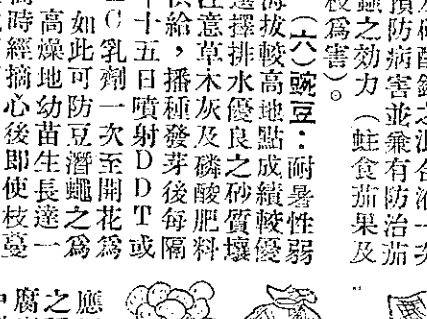 酸鉛之混合液一次
預防病害並兼有防治茄
蟲之効力（蛀食茄果及
枝爲害）。
（六）豌豆：耐暑性弱
海拔較高地點成績較優
選擇排水優良之砂質壤
注意草木灰及磷酸肥料
供給，播種發芽後每隔
十五日噴射DDT或
C乳劑一次至開花爲
如此可防豆潛蠅之爲
高燥地幼苗生長達一
時經摘心後即使枝蔓
應
之
腐